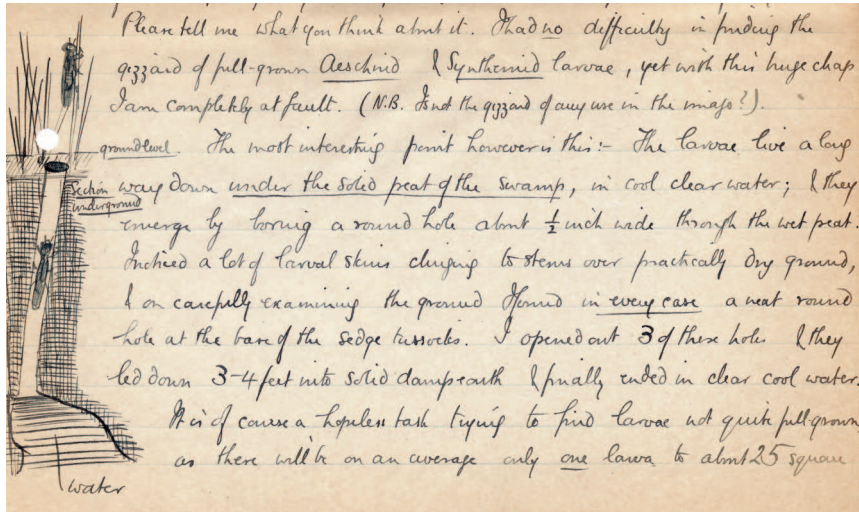 Please tell me what you think about it. I had no difficulty in finding the
gizzard of full-grown Aeschnid & Synthemid larvae, yet with this huge chap
I am completely at fault. (N.B. Is not the gizzard of any use in the imago?).
ground level. The most interesting point however is this:– The larvae live a long
Section underground
way down under the solid peat of the swamp, in cool clear water; & they
emerge by boring a round hole about ½ inch wide through the wet peat.
I noticed a lot of larval skins clinging to stems over practically dry ground,
& on carefully examining the ground I found in every case a neat round
hole at the base of the sedge tussocks. I opened out 3 of these holes & they
led down 3-4 feet into solid damp earth & finally ended in clear cool water.
It is of course a hopeless task trying to find larvae not quite full-grown
as there will be on an average only one larva to about 25 square
water